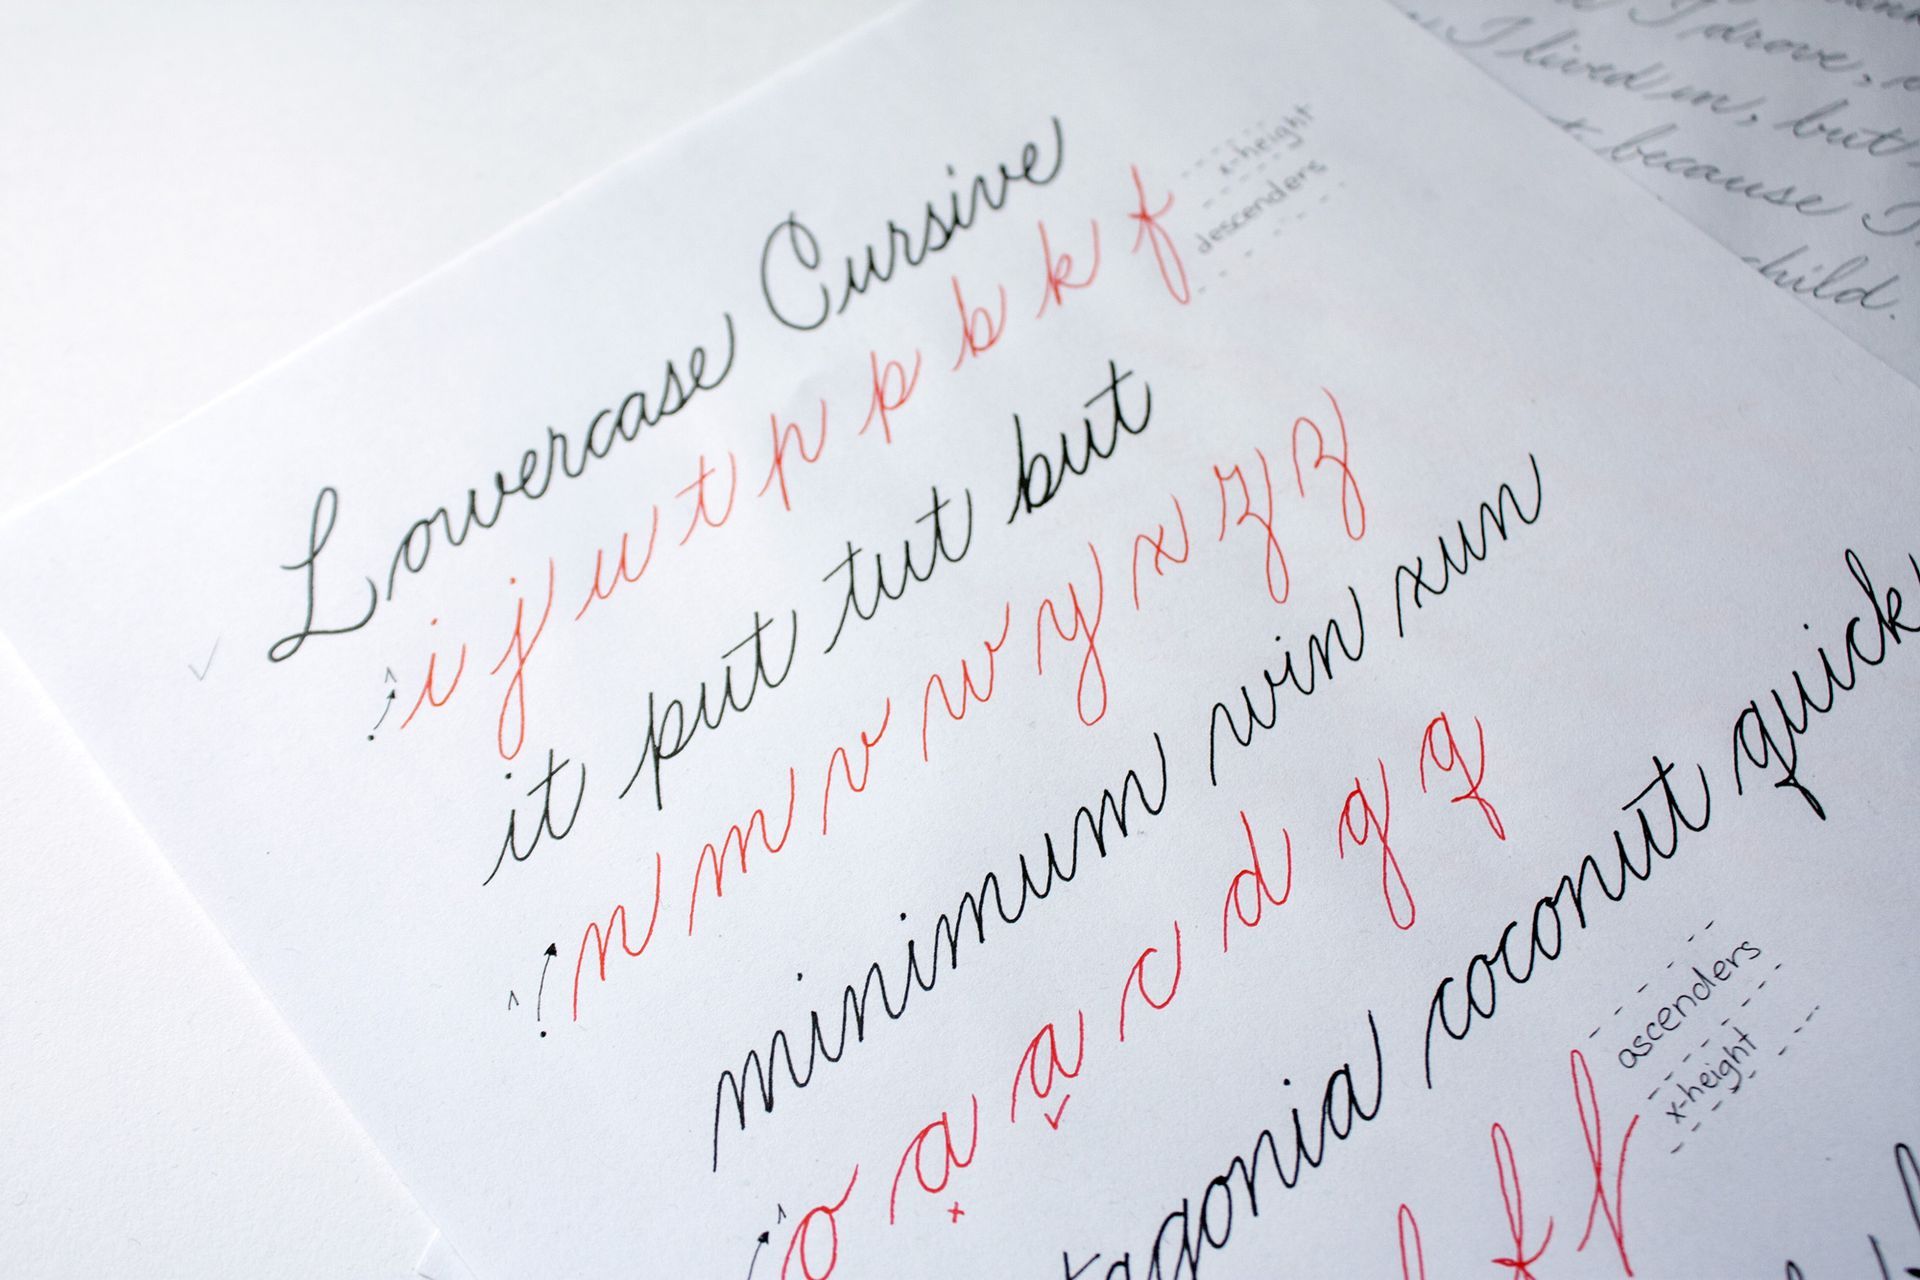 Lowercase Cursive
i j u t p p b k f
x-height
descenders
it put tut but
n m v w y x z z
minimum win xun
o a a c d g q
coconut quick
ascenders
x-height
I drove,
I lived in, but
because I
child.